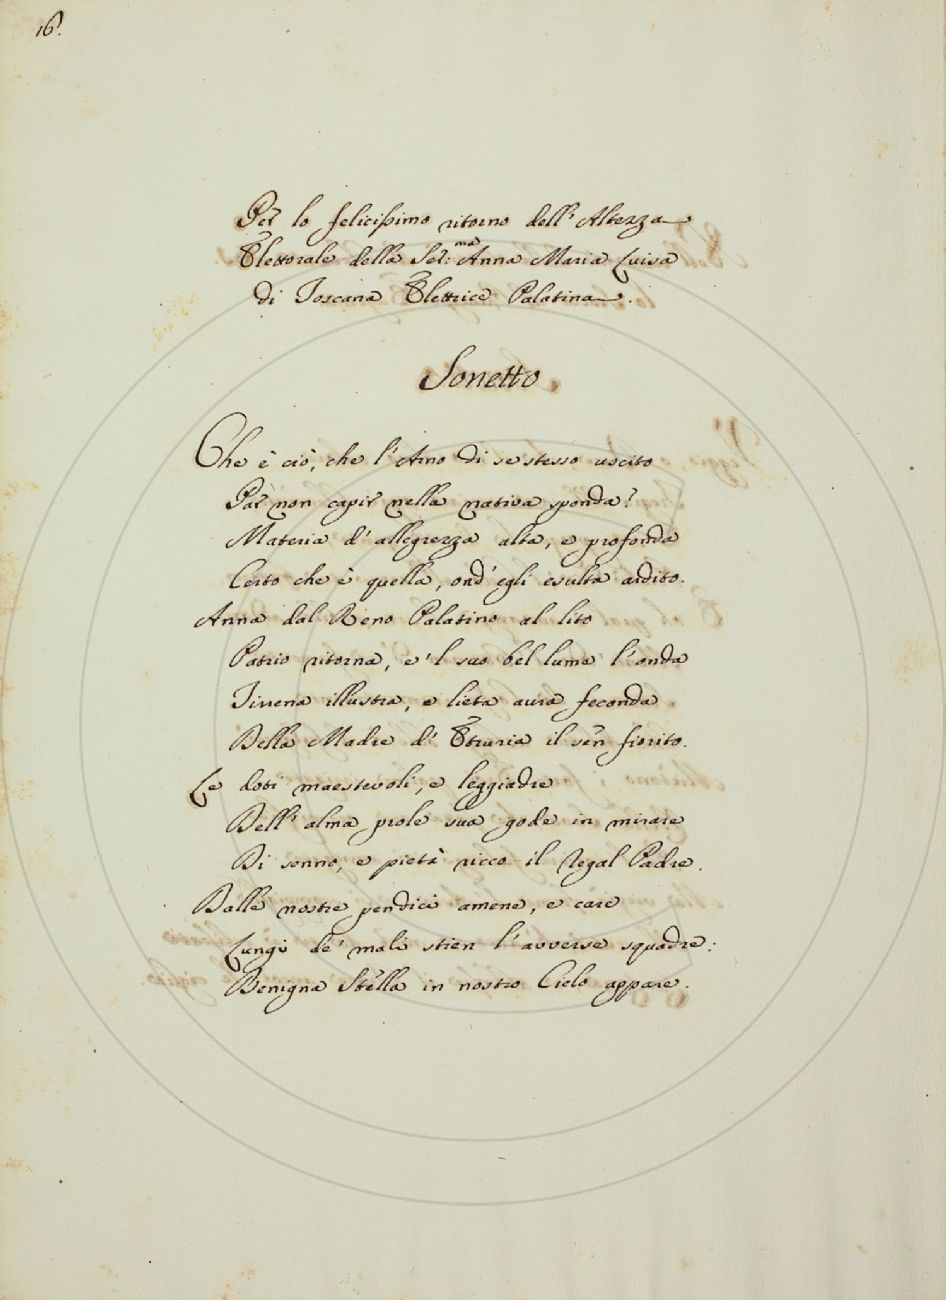 16.
Per lo felicissimo ritorno dell' Altezza
Elettorale della Ser:ma Anna Maria Luisa
di Toscana Elettrice Palatina.
Sonetto
Che è ciò, che l'Arno di se stesso uscito
Par non capir nella nativa sponda?
Materia d'allegrezza alta, e profonda
Certo che è quella, ond'egli esulta ardito.
Anna dal Reno Palatino al lito
Patrio ritorna, e'l suo bel lume l'onda
Tirrena illustra, e lieta aura feconda
Della Madre d'Etruria il sen fiorito.
Le doti maestevoli, e leggiadre
Dell'alma prole sua gode in mirare
Di senno, e pietà ricco il Regal Padre.
Dalle nostre pendici amene, e care
Lungi de' mali stien l'avverse squadre:
Benigna Stella in nostro Cielo appare.